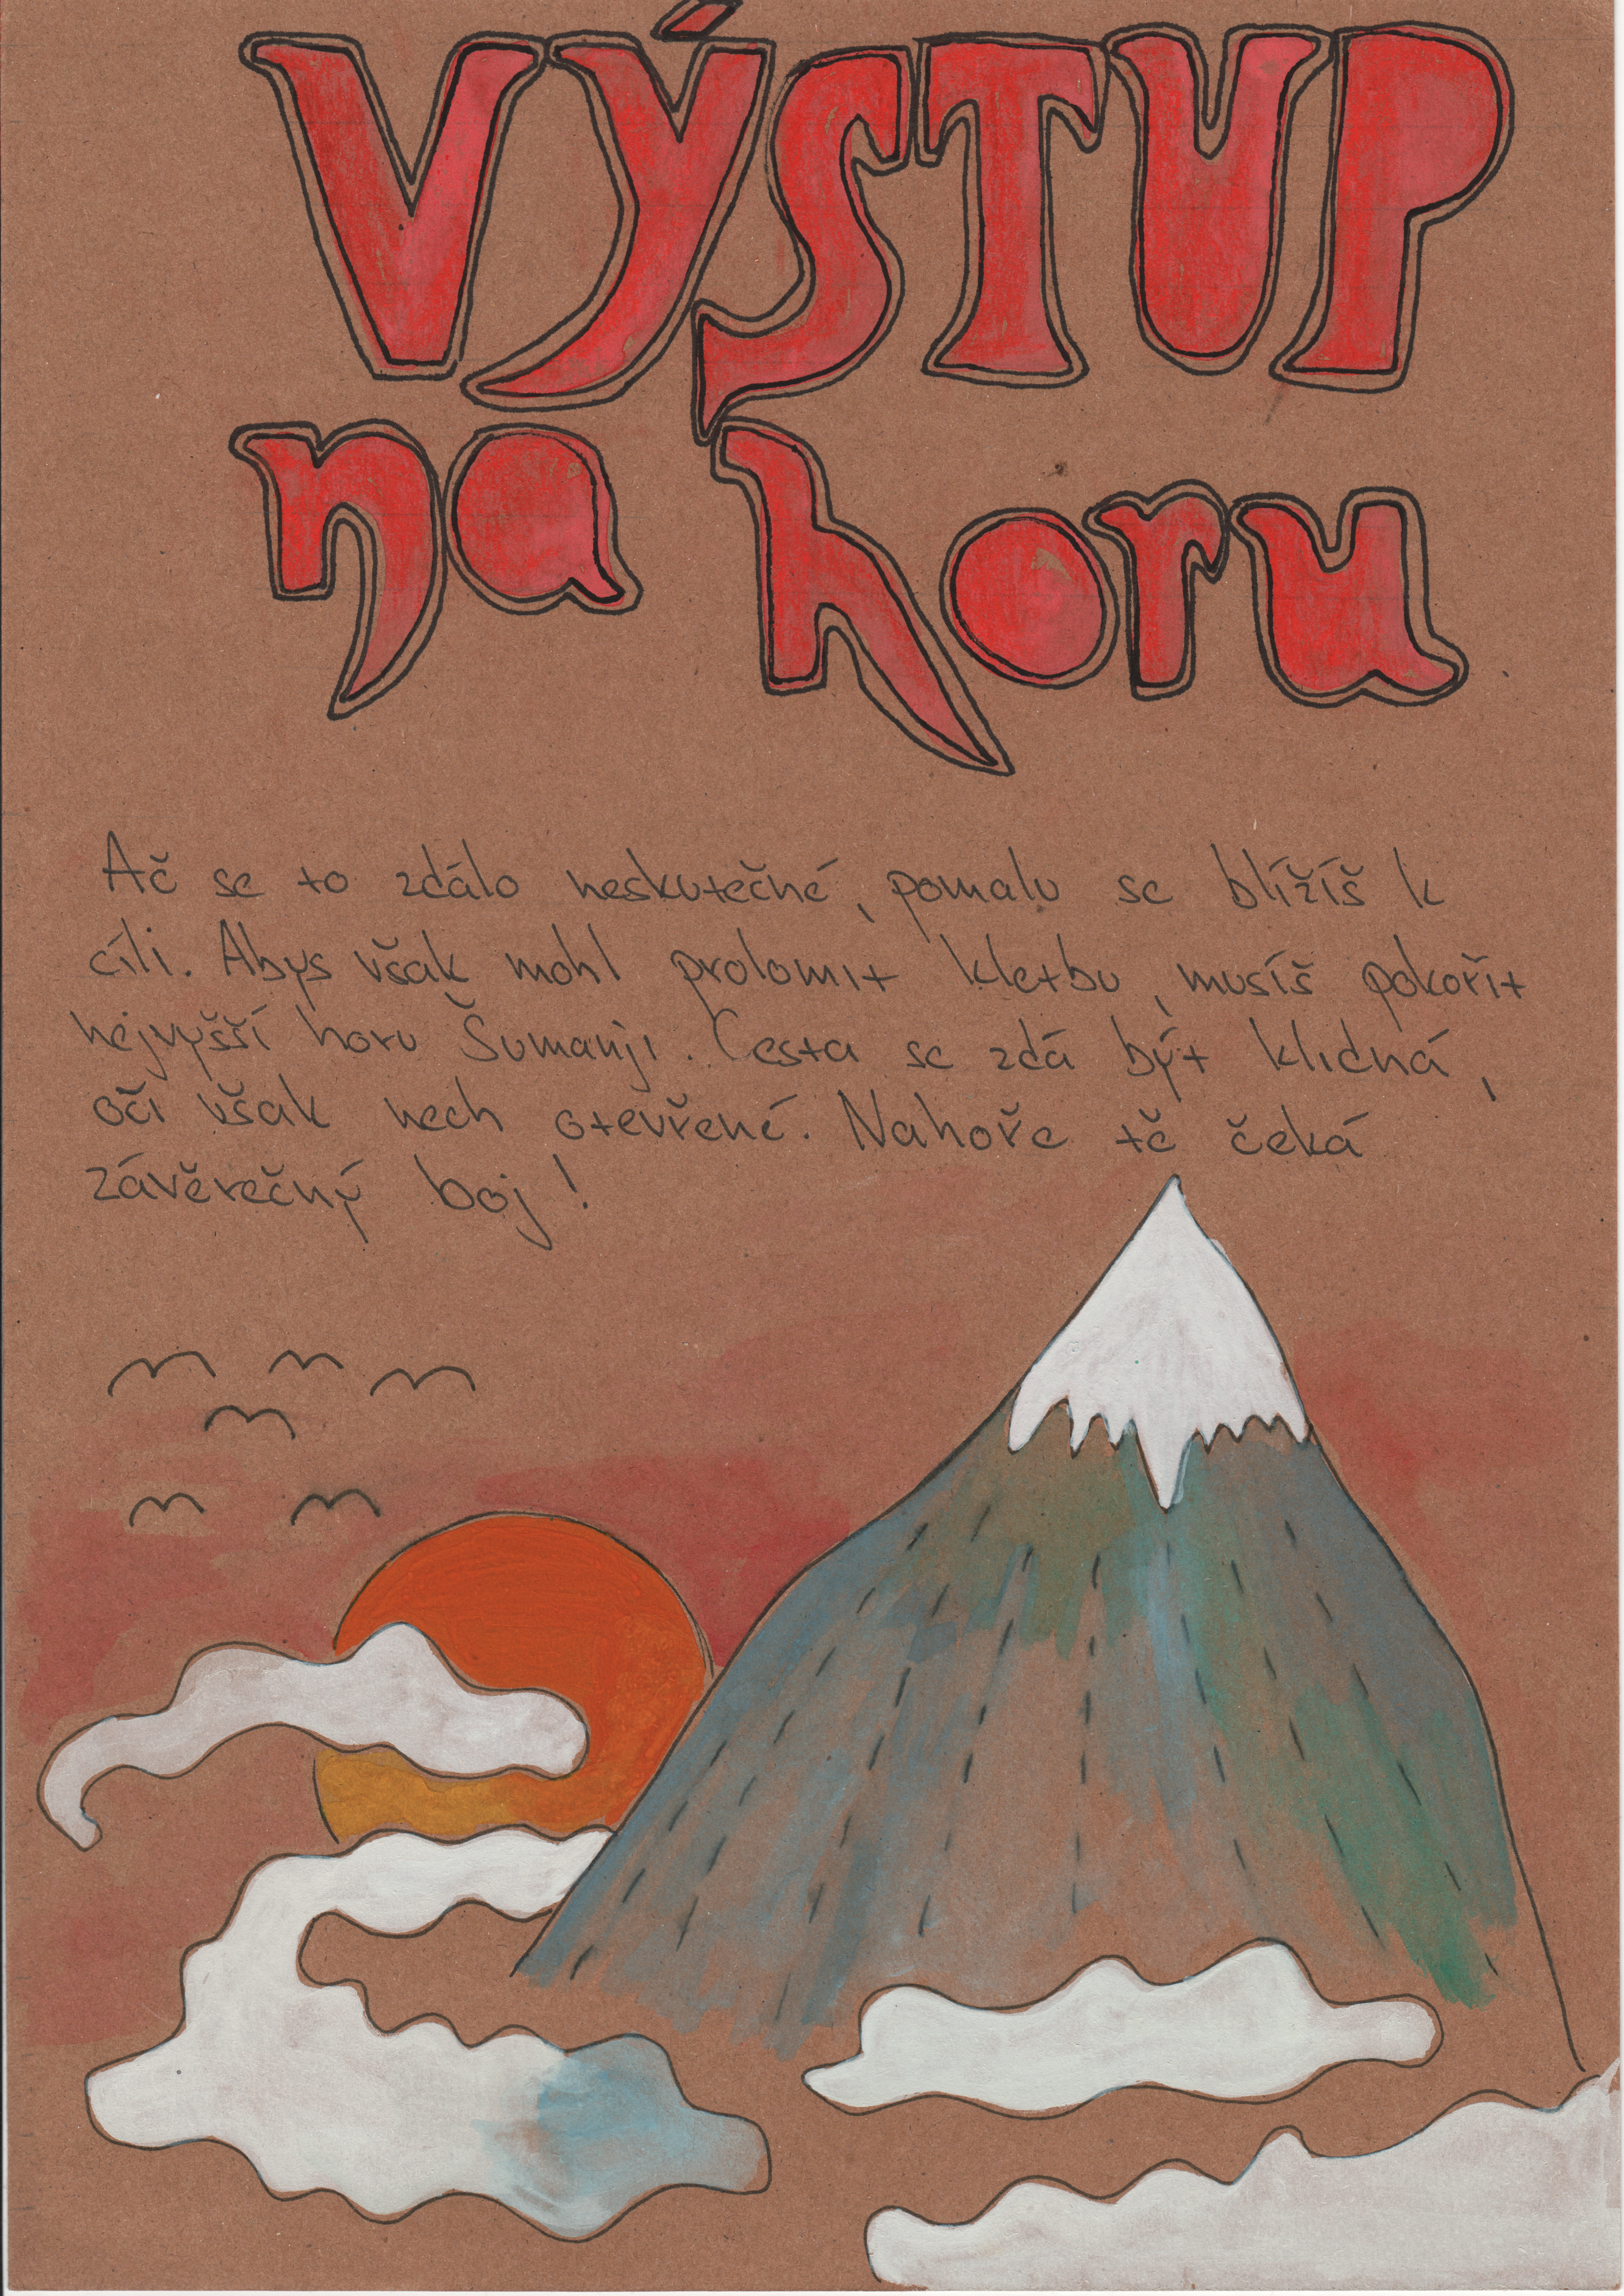 VÝSTUP
na horu
Ač se to zdálo neskutečné, pomalu se blížíš k
cíli. Abys však mohl prolomit kletbu, musíš pokořit
nejvyšší horu Šumanji. Cesta se zdá být klidná,
oči však nech otevřené. Nahoře tě čeká
závěrečný boj!